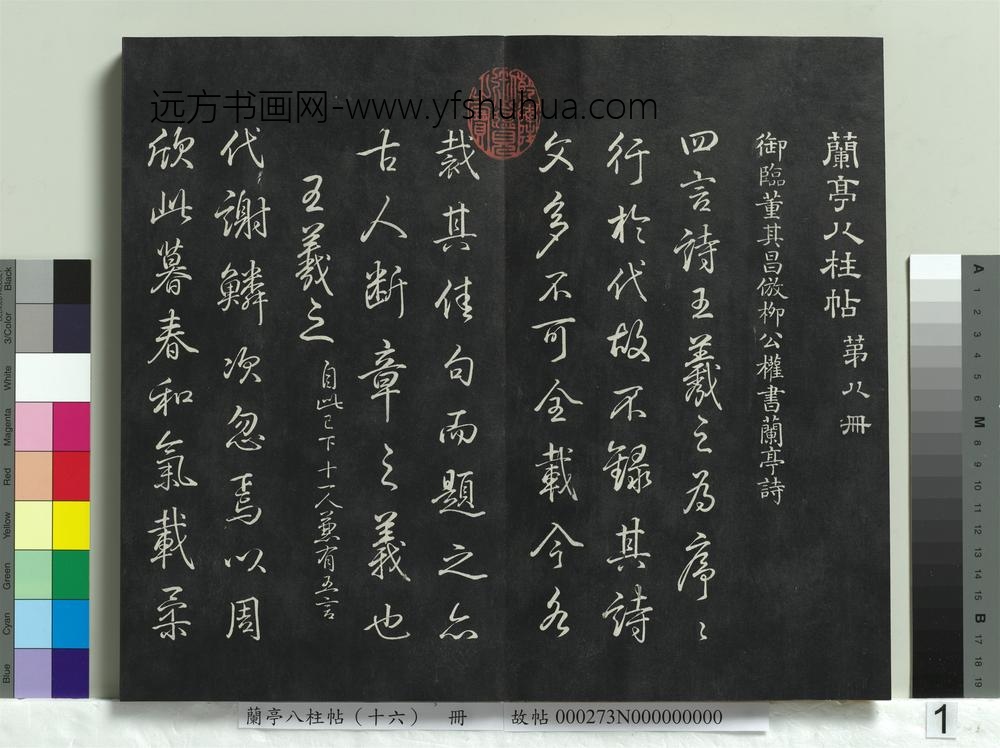 远方书画网-www.yfshuhua.com
蘭亭八柱帖 第八冊
御臨董其昌倣柳公權書蘭亭詩
四言詩王羲之為序〻
行於代故不錄其詩
文多不可全載今各
裁其佳句而題之亦
古人断章之義也
王羲之 自此已下十一人兼有五言
代謝鱗次忽焉以周
欣此暮春和氣載柔
蘭亭八柱帖（十六） 冊 故帖 000273N000000000
1
Black
3/Color
White
Magenta
Red
Yellow
Green
Cyan
Blue
A
1
2
3
4
5
6
M
8
9
10
11
12
13
14
15
B
17
18
19